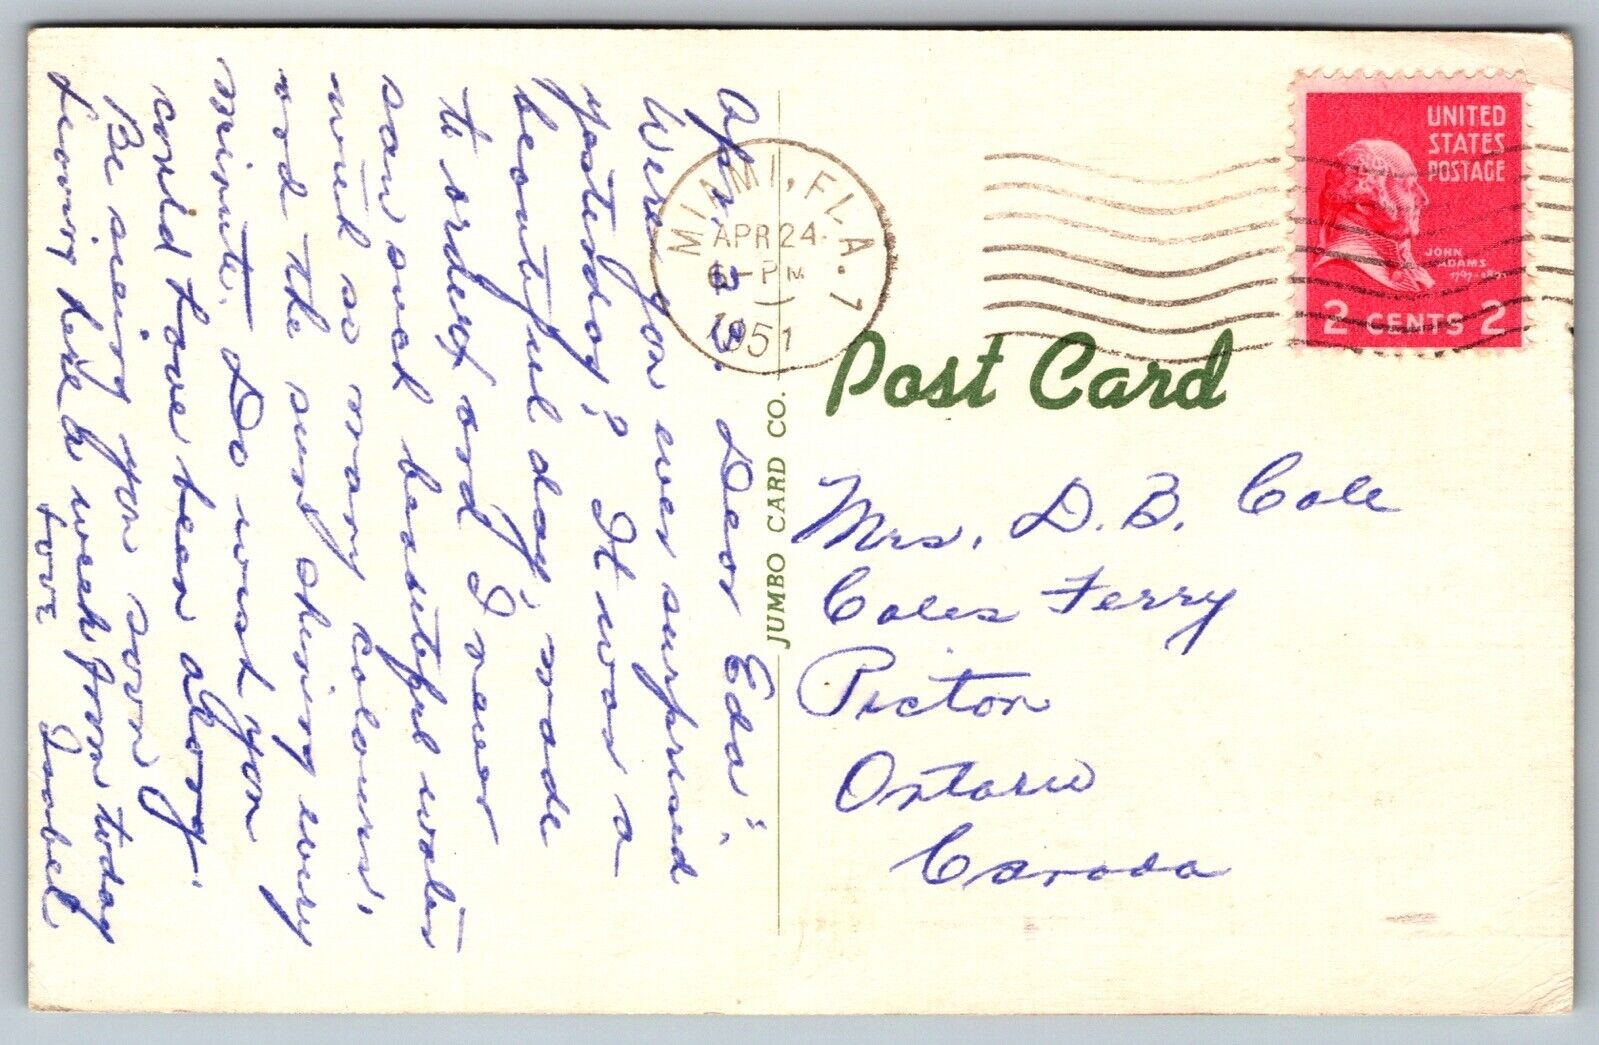 Apr. 23. Dear Eda:
Were you ever surprised
yesterday? It was a
beautiful day, made
to order, and I never
saw such beautiful water
with so many colours,
and the sun shining every
minute. Do wish you
could have been along.
Be seeing you soon
leaving here a week from today
Love
Isobel
MIAMI, FLA. 7
APR 24
6 - PM
1951
UNITED
STATES
POSTAGE
JOHN
ADAMS
1797-1801
2 CENTS 2
Post Card
JUMBO CARD CO.
Mrs. D. B. Cole
Coles Ferry
Picton
Ontario
Canada